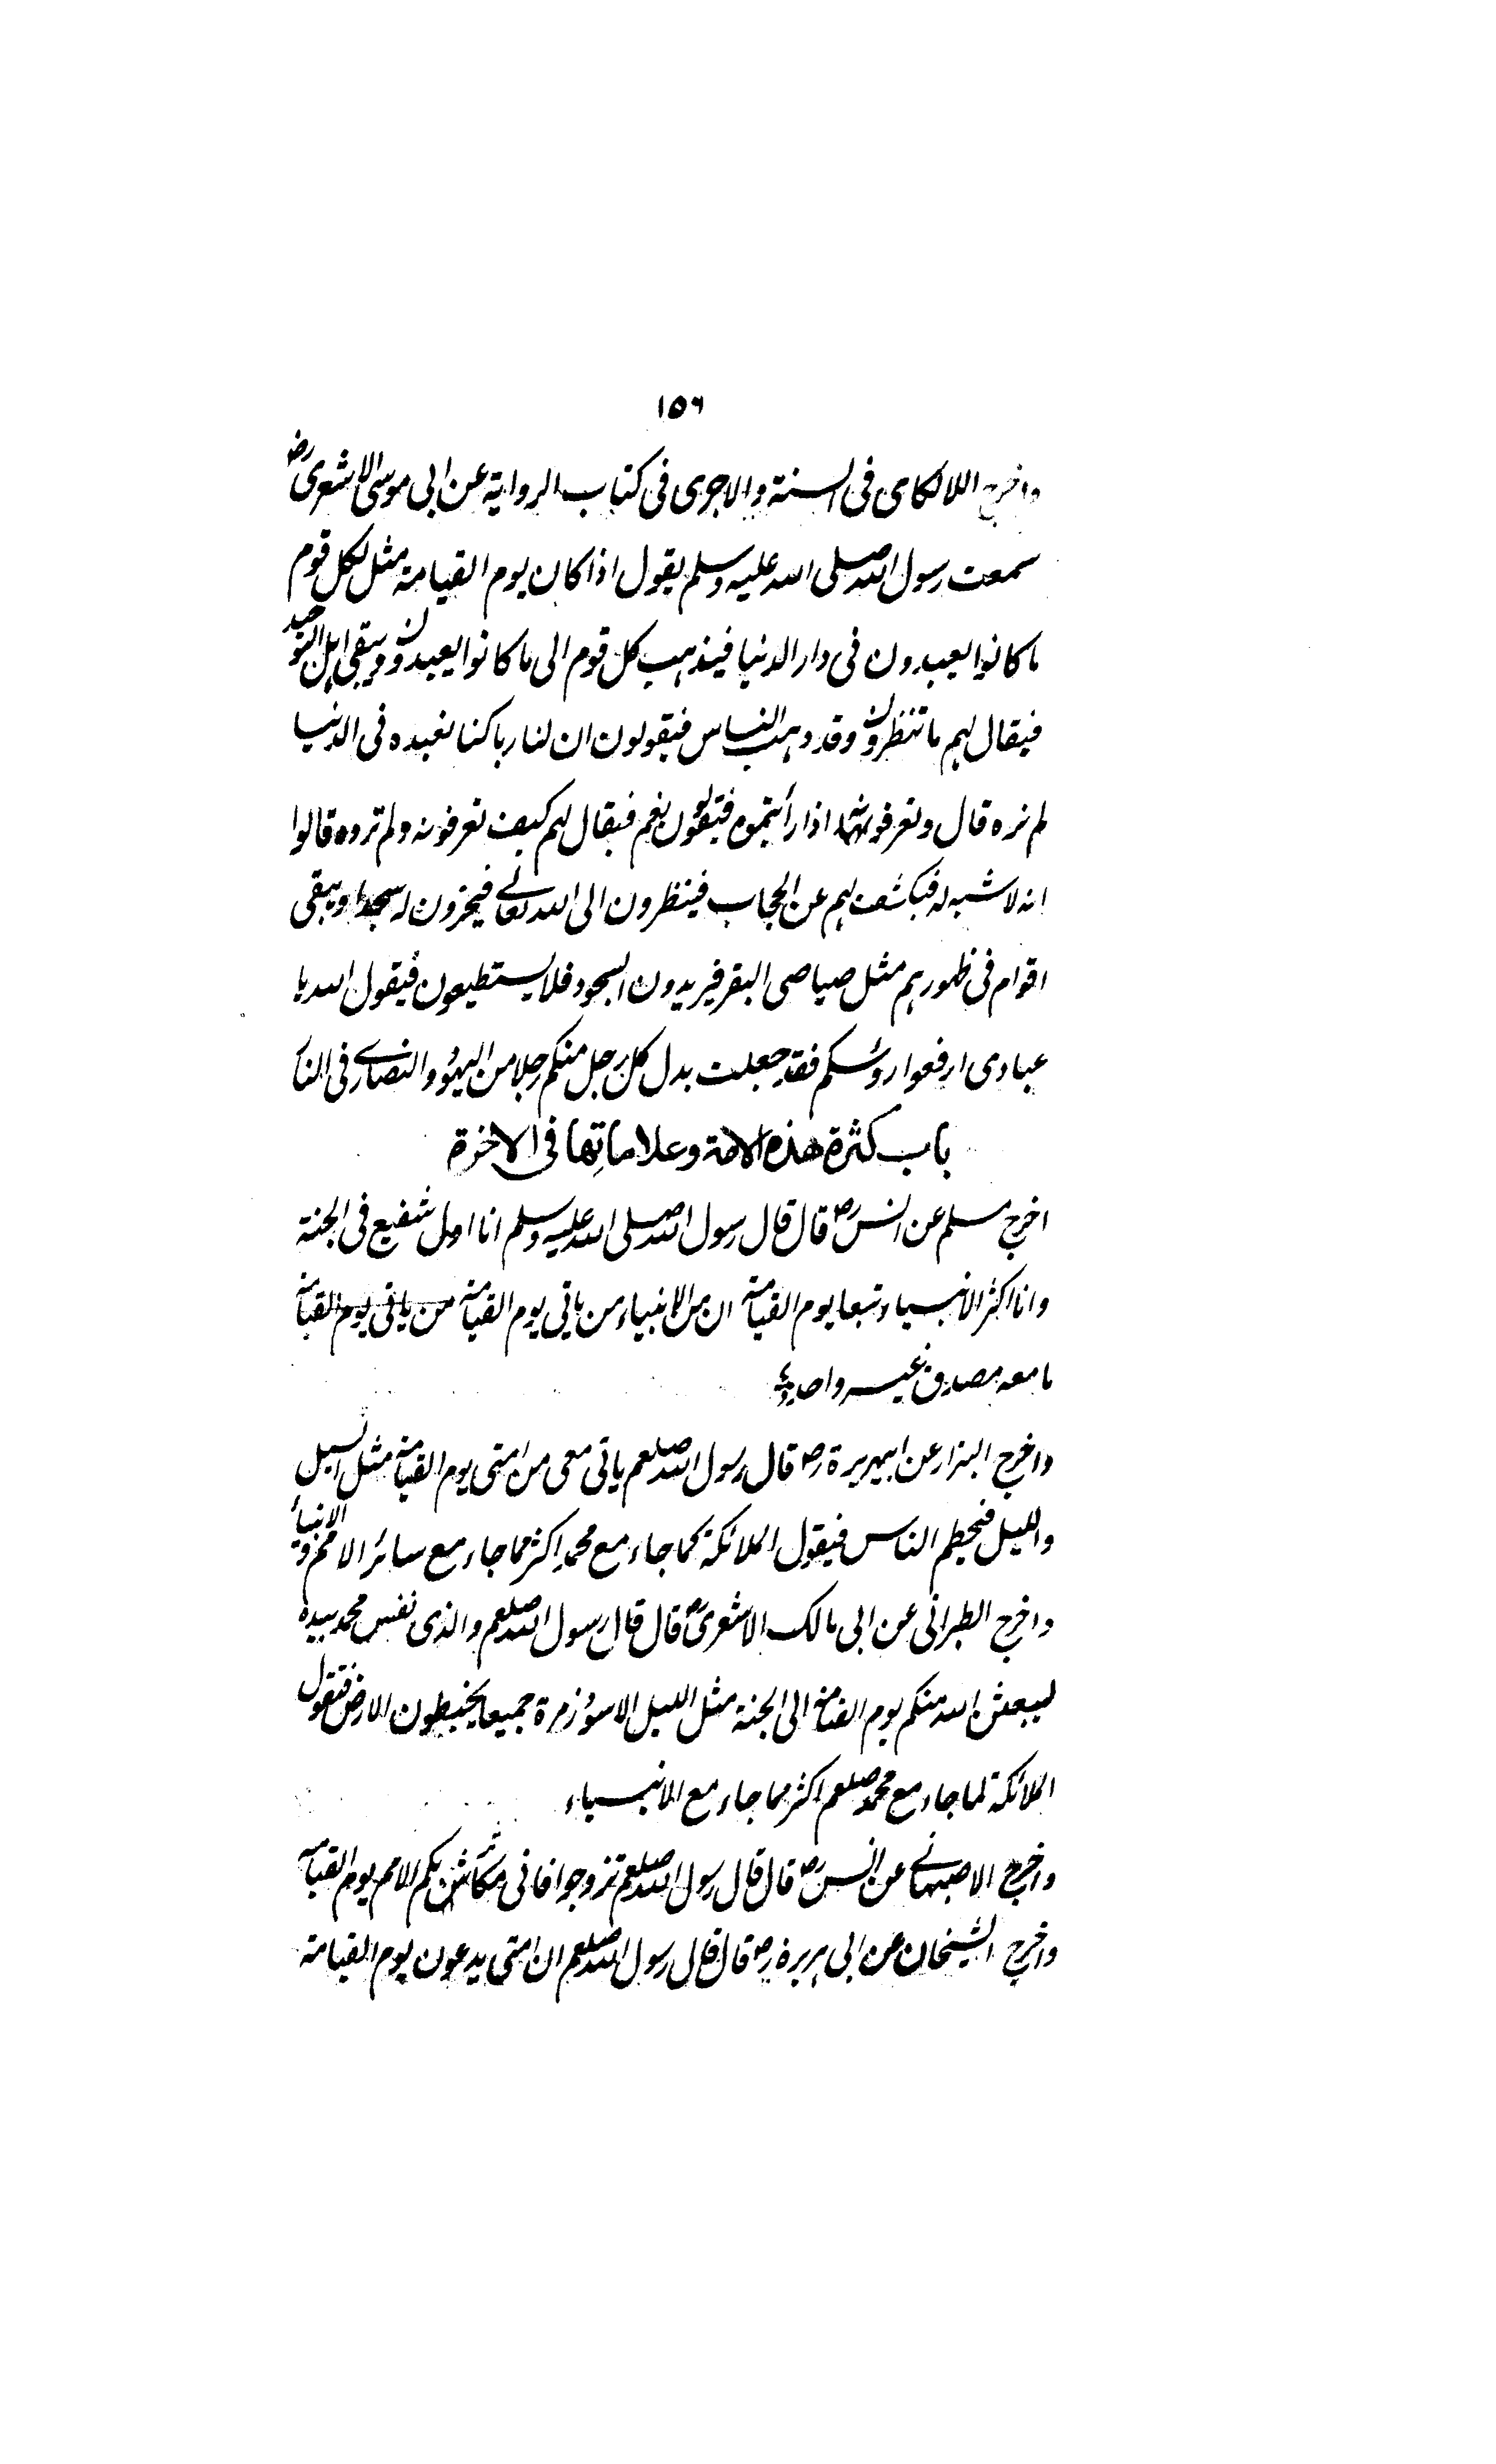 ١٥٦
واخرج اللالكاى فى السنة والاجرى فى كتاب الرواية عن ابى موسى الاشعرى رض
سمعت رسول الله صلى الله عليه وسلم يقول اذا كان يوم القيامة مثل لكل قوم
ما كانوا يعبدون فى دار الدنيا فيذهب كل قوم الى ما كانوا يعبدون ويبقى اهل التوحيد
فيقال لهم ما تنظرون وقد ذهب الناس فيقولون ان لنا ربا كنا نعبده فى الدنيا
لم نره قال وتعرفونه اذا رأيتموه فيقولون نعم فيقال لهم كيف تعرفونه ولم تروه قالوا
انه لا شبه له فيكشف لهم عن الحجاب فينظرون الى الله تعالى فيخرون له سجدا ويبقى
اقوام فى ظهورهم مثل صياصى البقر فيريدون السجود فلا يستطيعون فيقول الله يا
عبادى ارفعوا رؤسكم فقد جعلت بدل كل رجل منكم رجلا من اليهود والنصارى فى النار
باب كثرة هذه الامة وعلاماتها فى الاخرة
اخرج مسلم عن انس رض قال قال رسول الله صلى الله عليه وسلم انا اول شفيع فى الجنة
وانا اكثر الانبياء تبعا يوم القيامة ان من الانبياء من ياتى يوم القيامة من ياتى يوم القيامة
ما معه مصدق غير واحد
واخرج البزار عن ابيهريرة رض قال رسول الله صلعم ياتى معى من امتى يوم القيامة مثل السيل
والليل فيحطم الناس فيقول الملائكة لما جاء مع محمد اكثر مما جاء مع سائر الامم والانبياء
واخرج الطبرانى عن ابى مالك الاشعرى رض قال قال رسول الله صلعم والذى نفس محمد بيده
ليبعثن الله منكم يوم القيامة الى الجنة مثل الليل الاسود زمرة جميعا يخبطون الارض فتقول
الملائكة لما جاء مع محمد صلعم اكثر مما جاء مع الانبياء
واخرج الاصبهانى عن انس رض قال قال رسول الله صلعم تزوجوا فانى مكاثر بكم الامم يوم القيامة
واخرج الشيخان عن ابى هريرة رض قال قال رسول الله صلعم ان امتى يدعون يوم القيامة